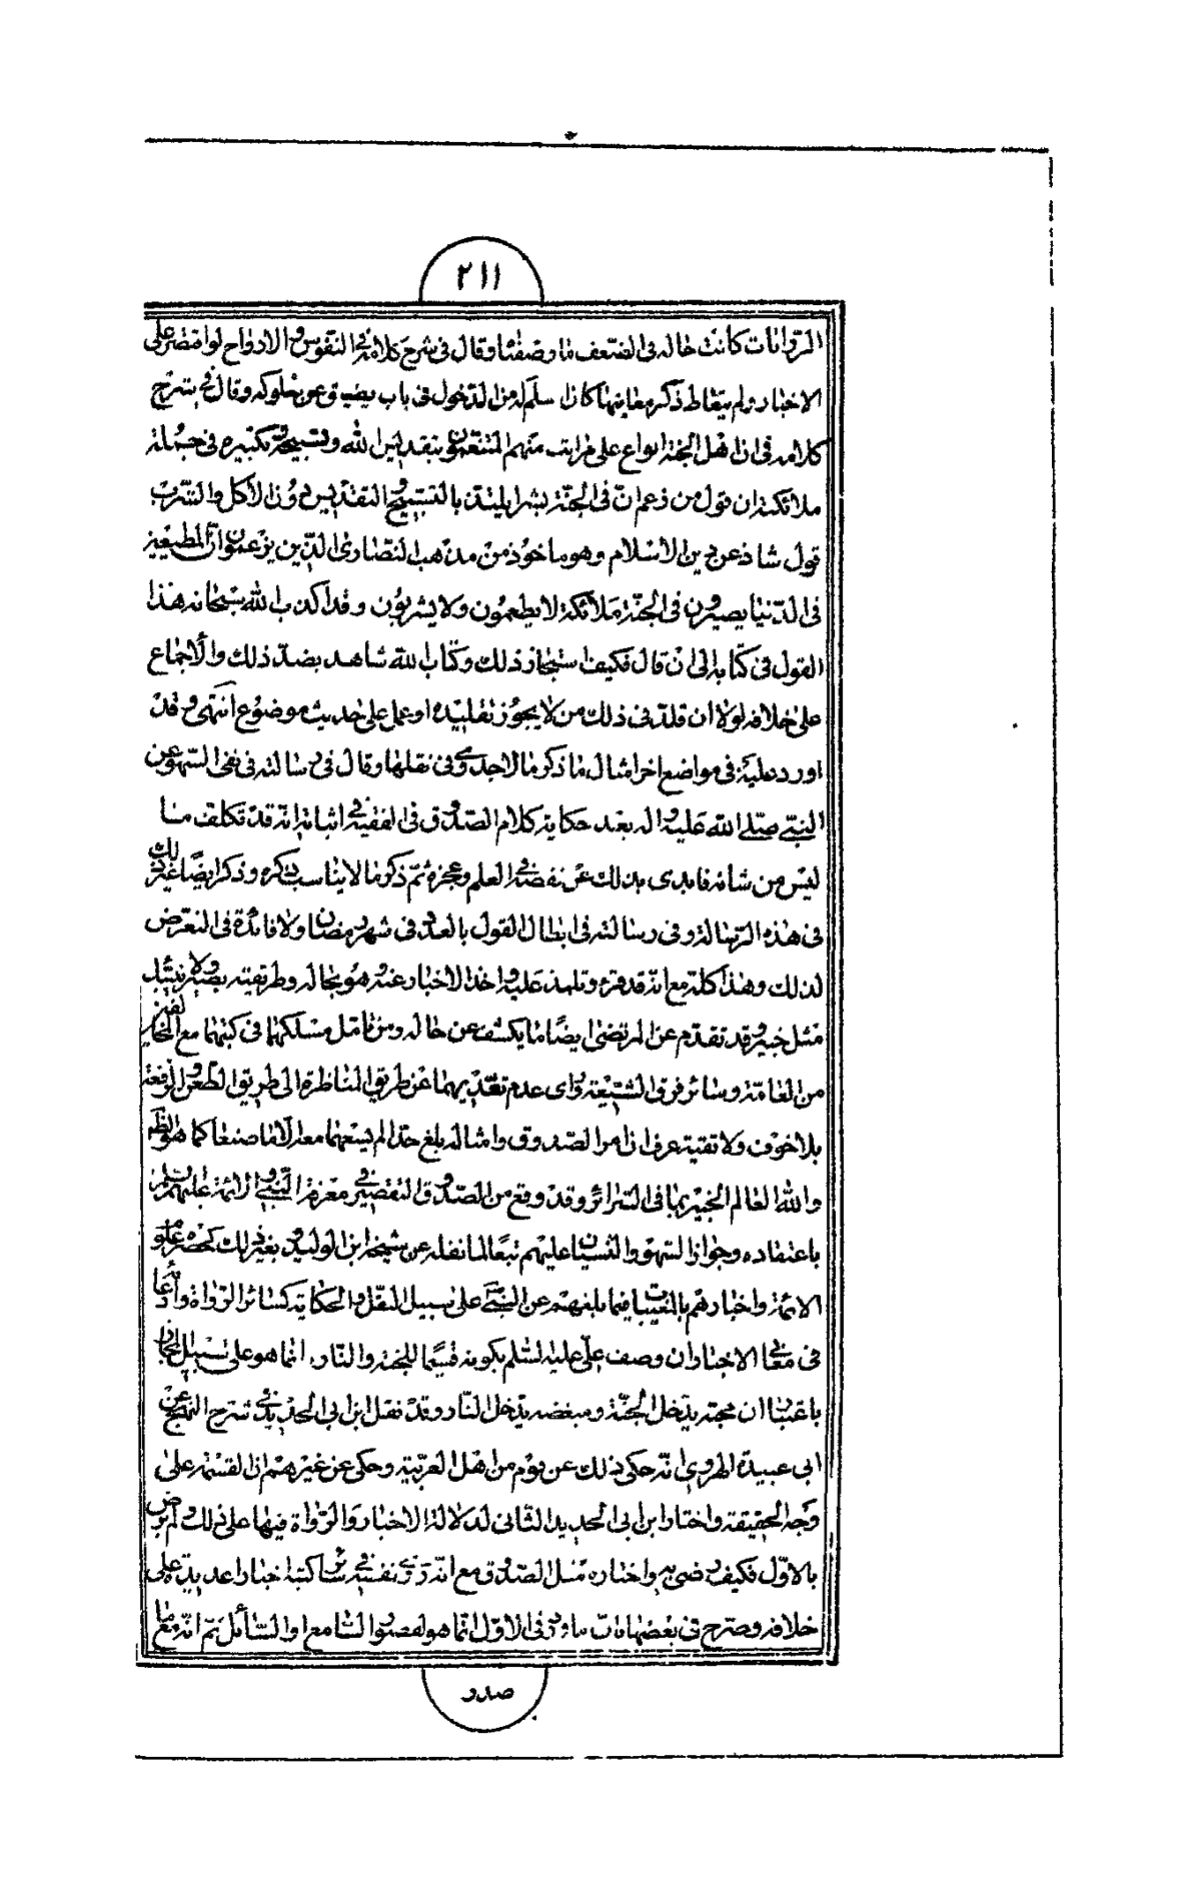 ٢١١
الروايات كانت حاله فى الضعف ما وصفنا وقال فى شرح كلامه فى النفوس والارواح لو اقتصر على
الاخبار ولم يتعاط ذكر معانيها كان اسلم له من الدخول فى باب يضيق عنه سلوكه وقال فى شرح
كلامه فى ان اهل الجنة انواع على مراتب منهم المتنعمون بتقديس الله وتسبيحه وتكبيره فى جملة
ملائكته ان قول من زعم ان فى الجنة بشرا يلتذ بالتسبيح والتقديس دون الاكل والشرب
قول شاذ عن دين الاسلام وهو ماخوذ من مذهب النصارى الذين يزعمون ان المطيعين
فى الدنيا يصيرون فى الجنة ملائكة لا يطعمون ولا يشربون وقد اكذب الله سبحانه هذا
القول فى كتابه الى ان قال فكيف استجاز ذلك وكتاب الله شاهد بضد ذلك والاجماع
على خلافه لولا ان قلد فى ذلك من لا يجوز تقليده او عمل على حديث موضوع انتهى وقد
اورد عليه فى مواضع اخر امثال ما ذكر مما لا جدوى فى نقلها وقال فى رسالته فى نفى السهو عن
النبى صلى الله عليه واله بعد حكاية كلام الصدوق فى الفقيه فى اثباته انه قد تكلف ما
ليس من شانه فابدى بذلك عن نقصه فى العلم وعجزه ثم ذكر ما لا يناسب ذكره وذكر ايضا غير ذلك
فى هذه الرسالة وفى رسالته فى ابطال القول بالعدد فى شهر رمضان ولا فائدة فى التعرض
لذلك وهذا كله مع انه قد قرء وتلمذ عليه واخذ الاخبار عنه وهو بحاله وطريقته بصير ولا ينبئك
مثل خبير وقد تقدم عن المرتضى ايضا ما يكشف عن حاله ومن تامل مسلكهما فى كتبهما مع المخالفين
من العامة وسائر فرق الشيعة وراى عدم تعديهما عن طريق المناظرة الى طريق الطعن والوقيعة
بلا خوف ولا تقية عرف ان امر الصدوق وامثاله بلغ حدا لم يسعهما معه الا ما صنعا كما هو الظاهر
والله العالم الخبير بما فى السرائر وقد وقع من الصدوق التقصير فى معرفة النبى والائمة عليهم السلم
باعتقاده وجواز السهو والنسيان عليهم تبعا لما نقله عن شيخه ابن الوليد و بغير ذلك كحصره علو
الائمة واخبارهم بالغيبات فيما بلغهم عن النبى على سبيل النقل والحكاية كسائر الرواة وادعائه
فى معانى الاخبار ان وصف على عليه السلم بكونه قسيما للجنة والنار انما هو على سبيل المجاز
باعتبار ان محبه يدخل الجنة ومبغضه يدخل النار وقد نقل ابن ابى الحديد فى شرح النهج عن
ابى عبيدة الهروى انه حكى ذلك عن قوم من اهل العربية وحكى عن غيرهم ان القسمة على
وجه الحقيقة واختار ابن ابى الحديد الثانى لدلالة الاخبار والرواة فيها على ذلك ولم يرض
بالاول فكيف رضى به واختاره مثل الصدوق مع انه روى بنفسه فى سائر كتبه اخبارا عديدة على
خلافه وصرح فى بعضها بان ما ورد فى الاول انما هو لقصور السامع او السائل ثم انه مع ما
صدو